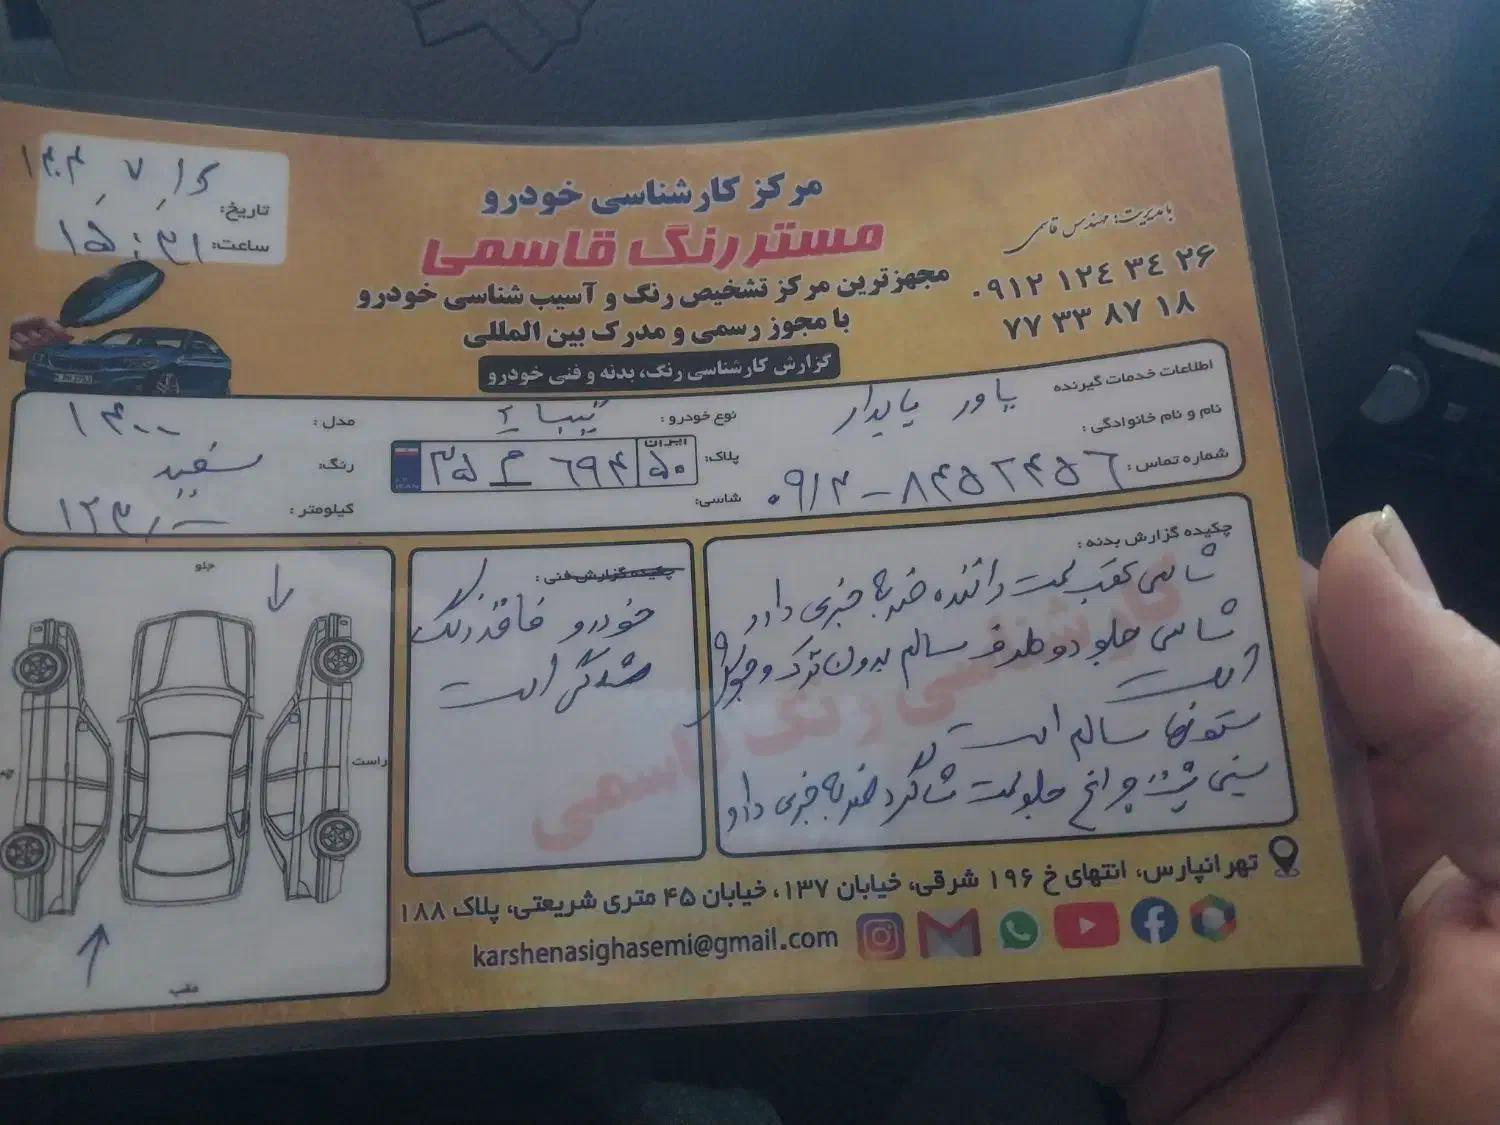 مرکز کارشناسی خودرو
مستر رنگ قاسمی
مجهزترین مرکز تشخیص رنگ و آسیب شناسی خودرو
با مجوز رسمی و مدرک بین المللی
گزارش کارشناسی رنگ، بدنه و فنی خودرو
با مدیریت: مهندس قاسمی
۰۹۱۲ ۱۲۴ ۳۴ ۲۶
۷۷ ۳۳ ۸۷ ۱۸
تاریخ:
ساعت: ۱۵:۳۱
اطلاعات خدمات گیرنده
نام و نام خانوادگی: یاور پایدار
شماره تماس: ۰۹۱۴-۸۴۵۲۴۵۶
نوع خودرو: تیبا ۲
پلاک: ایران ۵۰ ۶۹۴ م ۳۵
شاسی:
مدل: ۱۴۰۰
رنگ: سفید
کیلومتر:
چکیده گزارش بدنه:
شاسی عقب سمت راننده ضربه جزیی دارد
شاسی جلو دو طرف سالم بدون ترک و جوش
است
ستونها سالم است
سینی زیر چراغ جلو سمت شاگرد ضربه جزیی دارد
چکیده گزارش فنی:
خودرو فاقد رنگ
شدگی است
جلو
راست
عقب
کارشناسی رنگ قاسمی
تهرانپارس، انتهای خ ۱۹۶ شرقی، خیابان ۱۳۷، خیابان ۴۵ متری شریعتی، پلاک ۱۸۸
karshenasighasemi@gmail.com